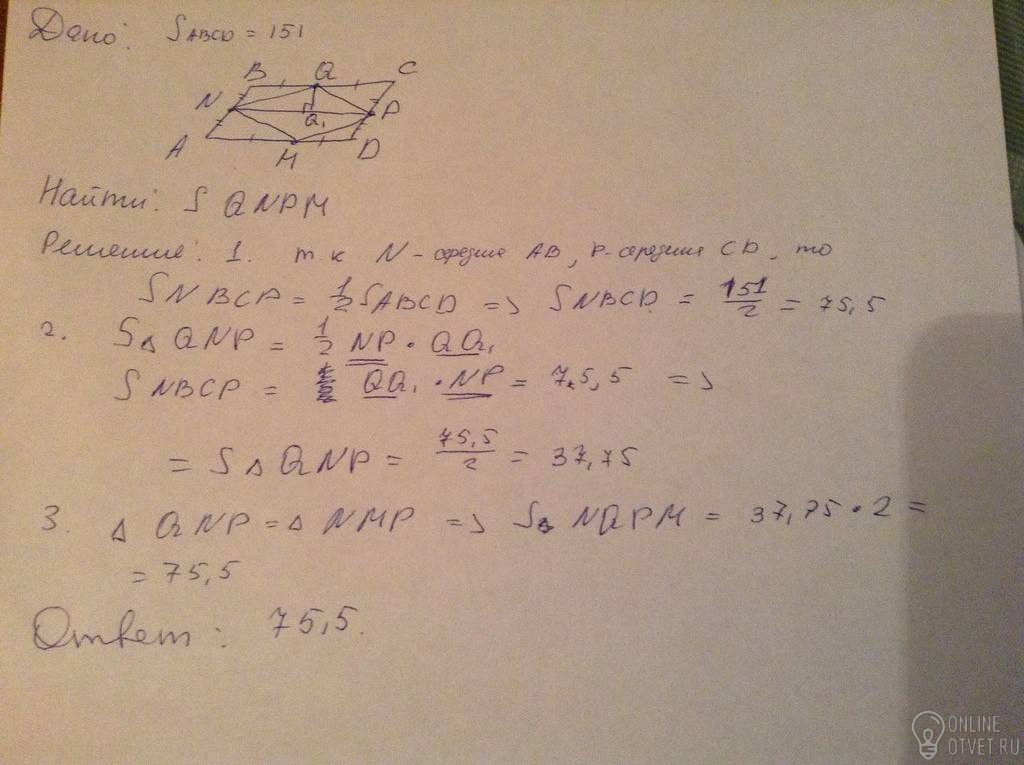 Дано: S ABCD = 151
B Q C
N Q₁ P
A M D
Найти: S QNPM
Решение: 1. т.к N - середина AB, P - середина CD, то
S NBCP = 1/2 S ABCD => S NBCD = 151/2 = 75,5
2. S△ QNP = 1/2 NP · QQ₁
S NBCP = QQ₁ · NP = 75,5 =>
= S △ QNP = 75,5/2 = 37,75
3. △ QNP = △ NMP => S NQPM = 37,75 · 2 =
= 75,5
Ответ: 75,5.
ONLINE
OTVET.RU